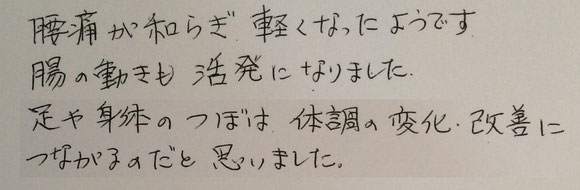 腰痛が和らぎ 軽くなったようです
腸の動きも 活発になりました.
足や身体のつぼは 体調の変化・改善に
つながるのだと 思いました。